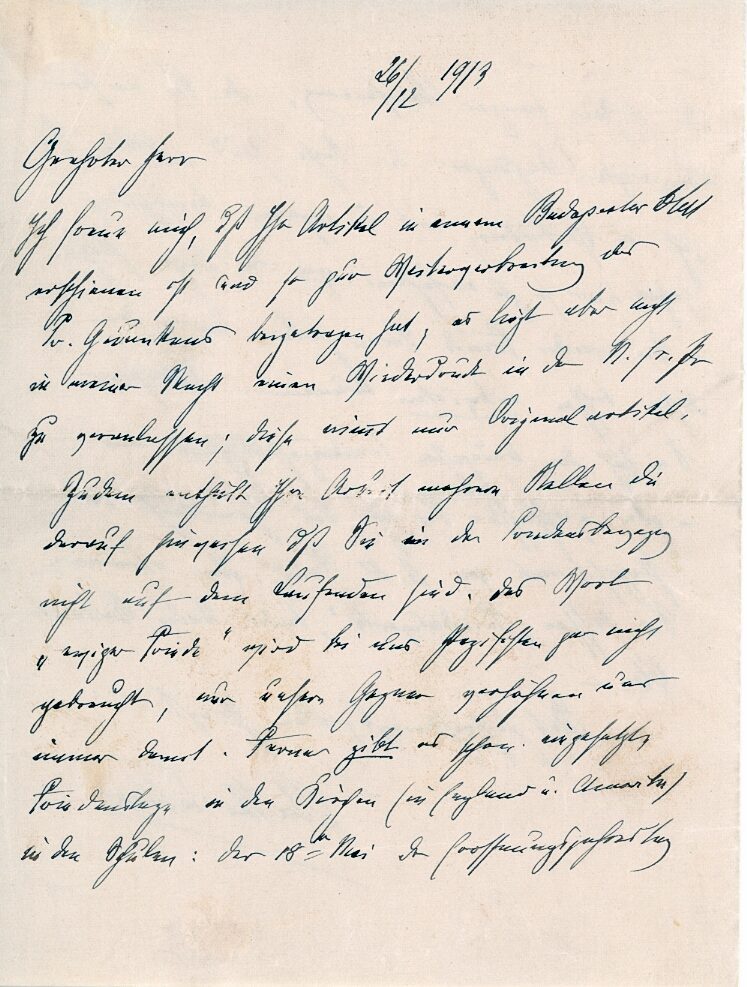 26/12 1913
Geehrter Herr
Ich freue mich, daß Ihr Artikel in einem Budapester Blatt
erschienen ist und so zur Weiterverbreitung des
Fr. Gedankens beigetragen hat, es liegt aber nicht
in meiner Macht einen Wiederdruck in der N. Fr. Pr
zu veranlassen; diese nimmt nur Originalartikel.
Zudem enthält Ihre Arbeit mehrere Stellen die
darauf hinweisen daß Sie in der Friedensbewegg
nicht auf dem Laufenden sind. Das Wort
„ewiger Friede" wird bei uns Pazifisten gar nicht
gebraucht, nur unsere Gegner verhöhnen uns
immer damit. Ferner gibt es schon eingesetzte
Friedenstage in den Kirchen (in England u. Amerika)
in den Schulen: der 18te Mai der Eröffnungsjahrestag